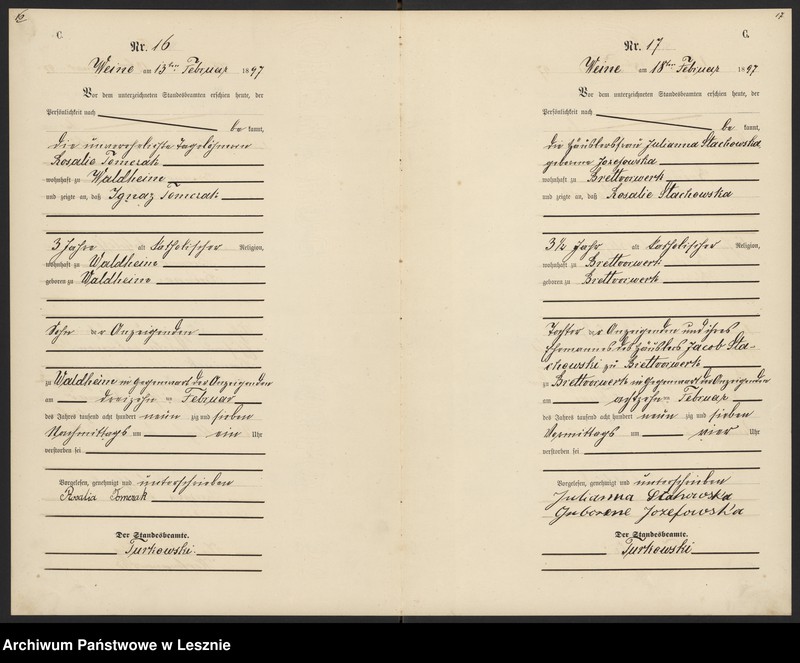 16
C.
Nr. 16
Weine am 13ten Februar 1897
Vor dem unterzeichneten Standesbeamten erschien heute, der
Persönlichkeit nach
be kannt,
die unverehelichte Tagelöhnerin
Rosalie Tomczak
wohnhaft zu Waldheine
und zeigte an, daß Ignaz Tomczak
3 Jahre alt katholischer Religion,
wohnhaft zu Waldheine
geboren zu Waldheine
Sohn der Anzeigenden
zu Waldheine in Gegenwart der Anzeigenden
am dreizehnten Februar
des Jahres tausend acht hundert neun zig und sieben
Nachmittags um ein Uhr
verstorben sei
Vorgelesen, genehmigt und unterschrieben
Rosalia Tomczak
Der Standesbeamte.
Turkowski.
17
C.
Nr. 17
Weine am 18ten Februar 1897
Vor dem unterzeichneten Standesbeamten erschien heute, der
Persönlichkeit nach
be kannt,
die Häuslersfrau Julianna Stachowska
geborene Jozefowska
wohnhaft zu Brettvorwerk
und zeigte an, daß Rosalie Stachowska
3½ Jahr alt katholischer Religion,
wohnhaft zu Brettvorwerk
geboren zu Brettvorwerk
Tochter der Anzeigenden und ihres
Ehemannes des Häuslers Jacob Sta-
chowski zu Brettvorwerk
zu Brettvorwerk in Gegenwart der Anzeigenden
am achtzehnten Februar
des Jahres tausend acht hundert neun zig und sieben
Vormittags um vier Uhr
verstorben sei
Vorgelesen, genehmigt und unterschrieben
Julianna Stahowska
Geborene Jozefowska
Der Standesbeamte.
Turkowski
Archiwum Państwowe w Lesznie